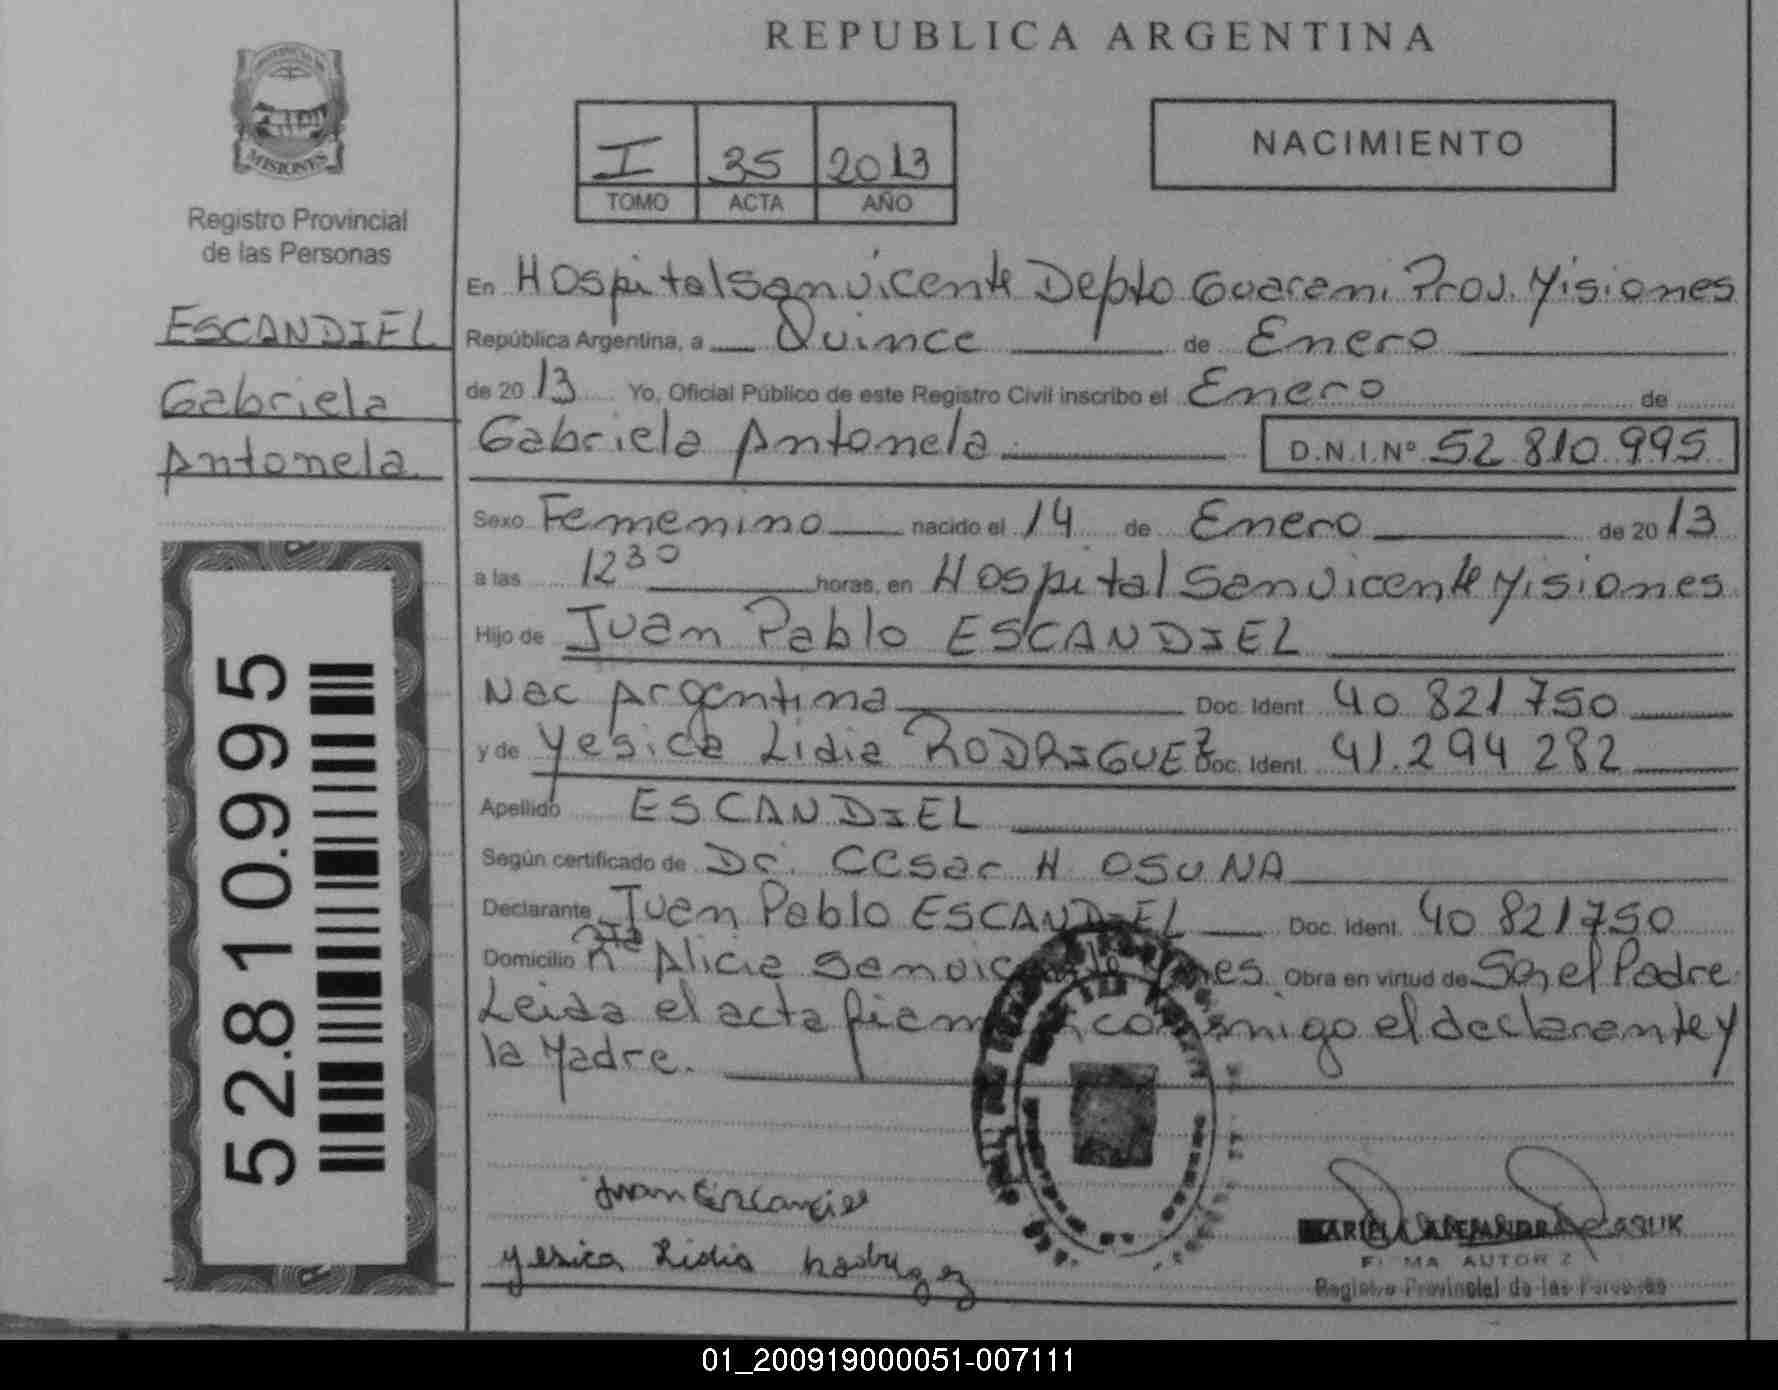 REPUBLICA ARGENTINA
MISIONES
Registro Provincial
de las Personas
ESCANDIEL
Gabriela
Antonela
52.810.995
I 35 2013
TOMO ACTA AÑO
NACIMIENTO
En Hospital San Vicente Depto Guarani Prov. Misiones
República Argentina, a Quince de Enero
de 2013 Yo, Oficial Público de este Registro Civil inscribo el Enero de
Gabriela Antonela D.N.I.Nº 52 810 995
Sexo Femenino nacido el 14 de Enero de 2013
a las 12 30 horas, en Hospital San Vicente Misiones
Hijo de Juan Pablo ESCANDIEL
Nac Argentina Doc. Ident. 40 821 750
y de Yesica Lidia RODRIGUEZ Doc. Ident. 41.294 282
Apellido ESCANDIEL
Según certificado de Dr. Cesar H OSUNA
Declarante Juan Pablo ESCANDIEL Doc. Ident. 40 821750
Domicilio Alicia San Obra en virtud de Ser el Padre
Leida el acta conmigo el declarante y
la Madre.
Yesica Lidia Rodrigez
FI MA AUTORIZ
Registro Provincial de las Personas
01_200919000051-007111